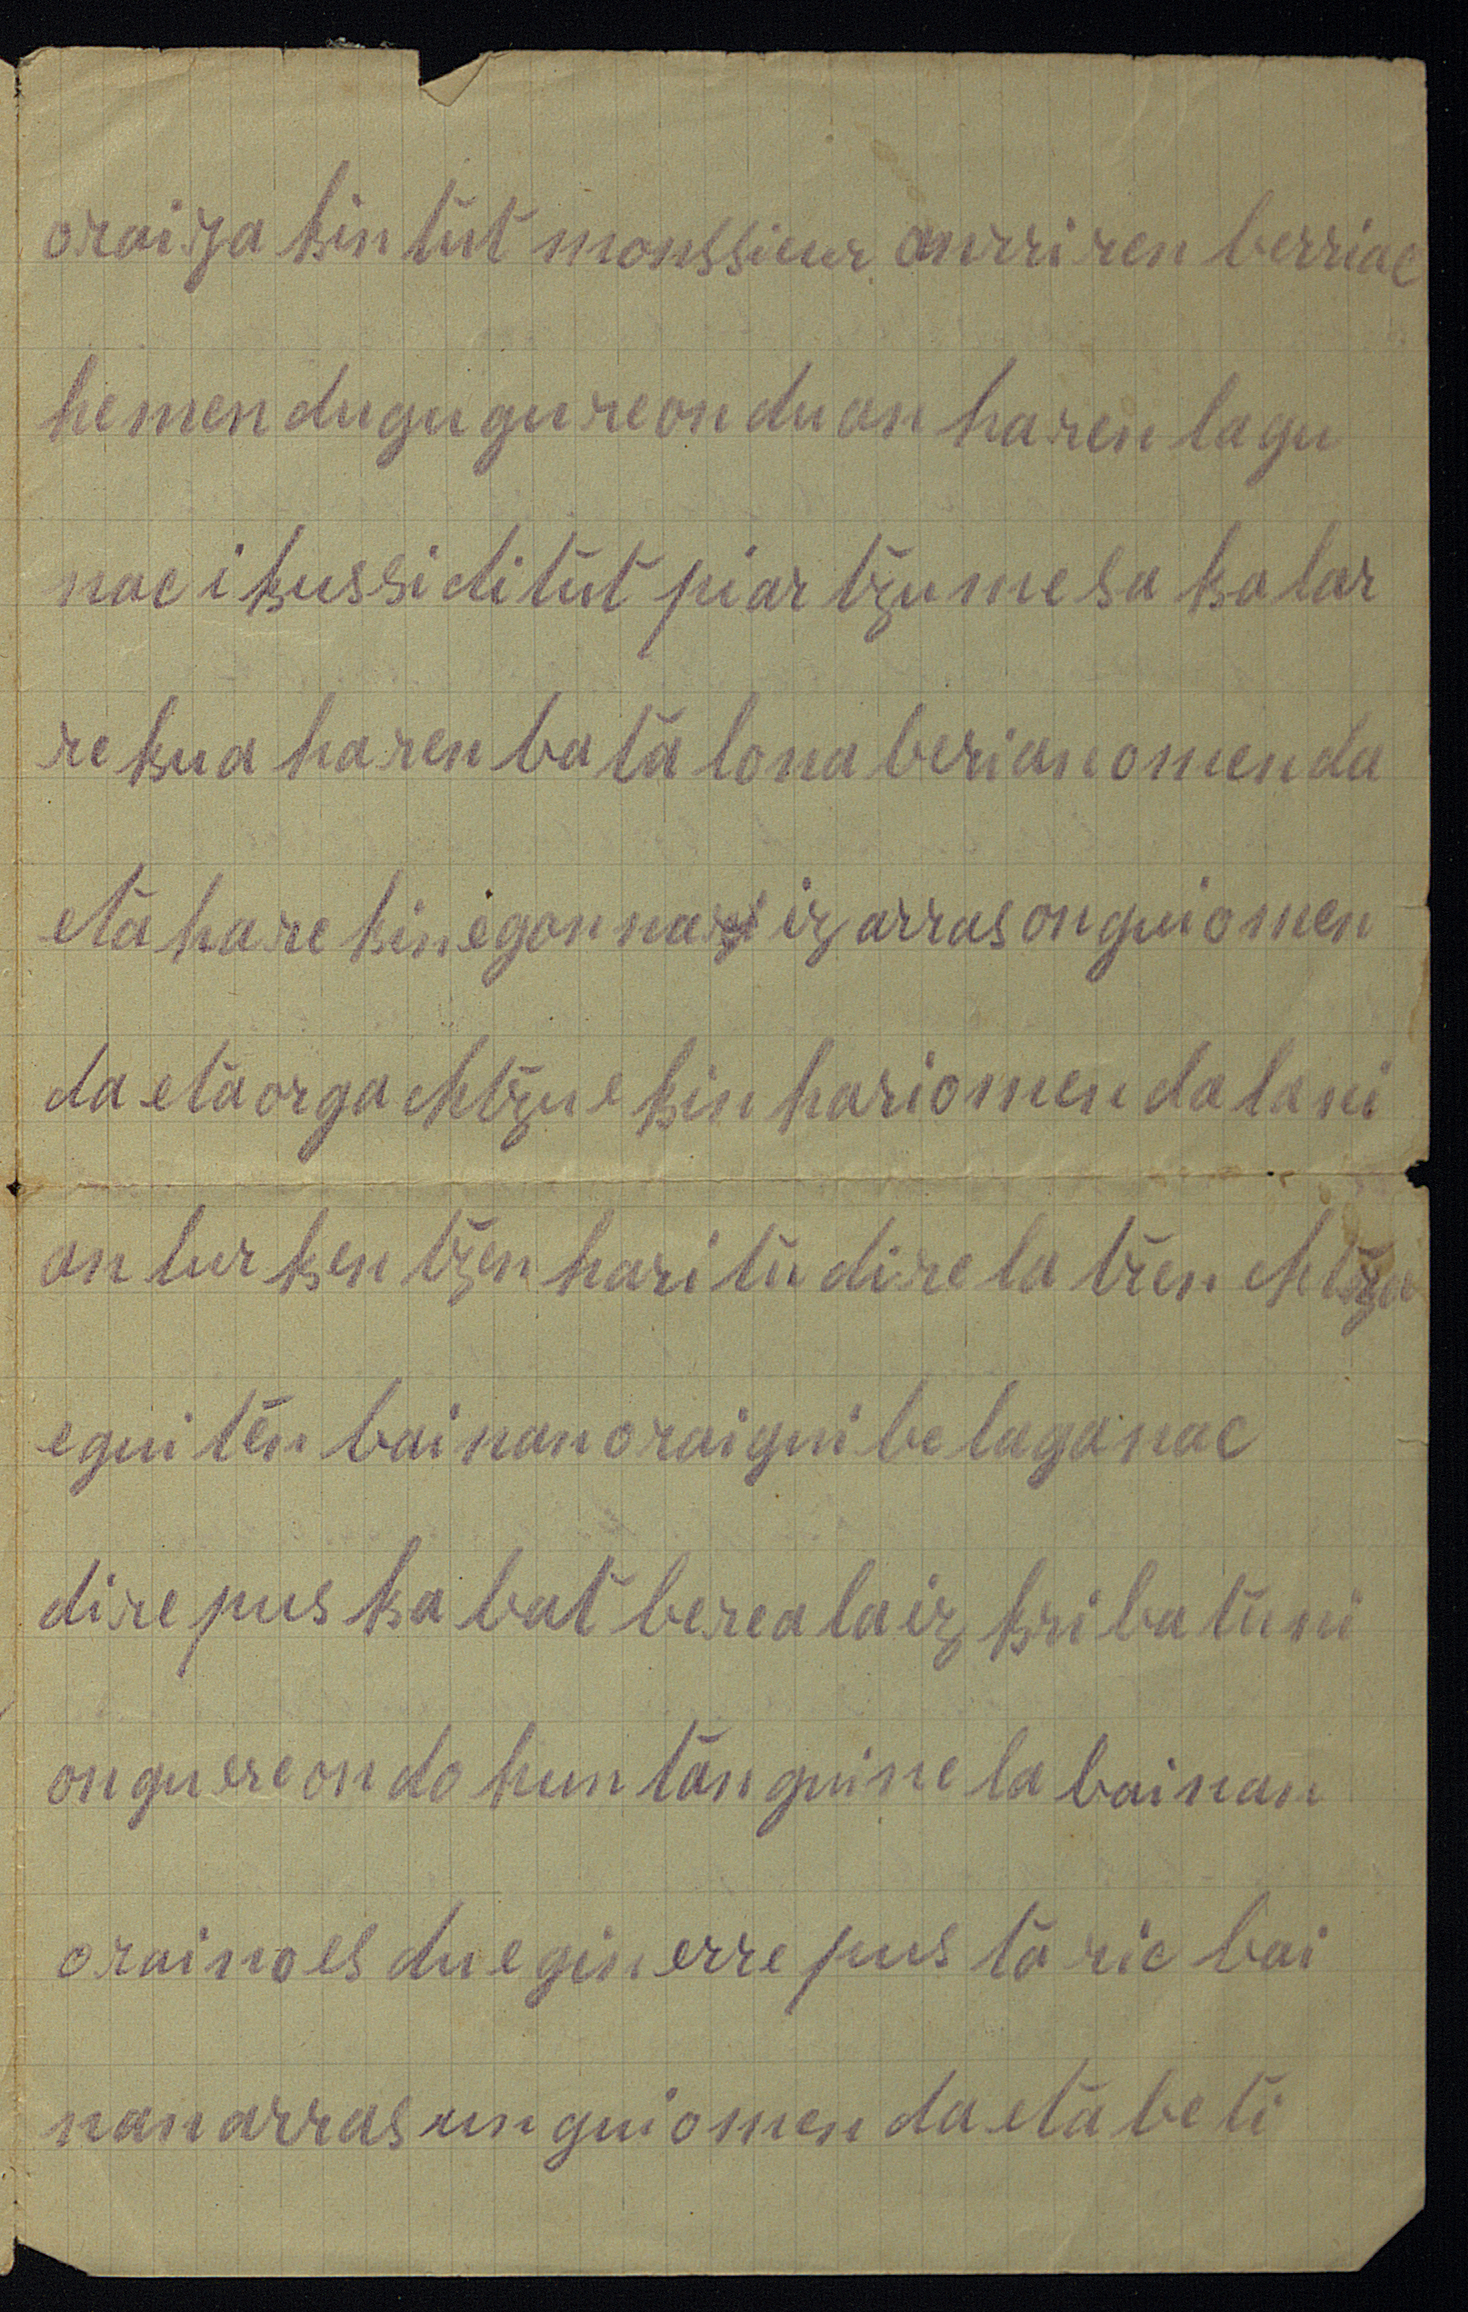 oraiza kin tut monssieur anrriren berriac
hemen dugu gureonduan haren lagu
nac ikussi ditut piartzu mesa kalar
rekua haren batalona berian omenda
eta harekin egonnaiz arras ongui omen
da eta orga chtzuekin hari omenda lani
an lurkentzen haritu direla tren chtza
equiten bainan oraigui belaganac
dire puska bat berealaizkribatuni
on gure ondo huntan guinela bainan
oraino es du egin errepustaric bai
nan arras unguiomenda eta beti